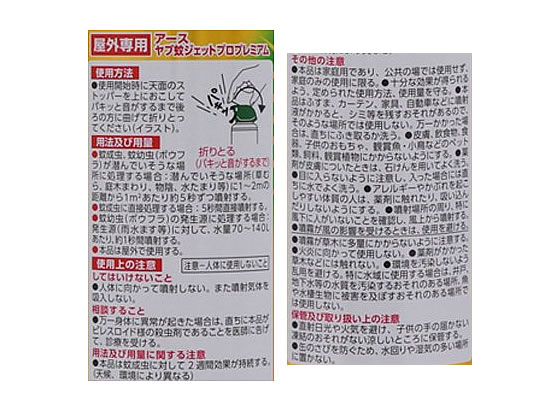 屋外専用
アース
ヤブ蚊ジェットプロプレミアム
使用方法
●使用開始時に天面のス
トッパーを上におこして
パキッと音がするまで後
ろの方に曲げて折りとっ
てください(イラスト)。
パキッ
折りとる
(パキッと音がするまで)
用法及び用量
●蚊成虫、蚊幼虫(ボウフラ)
が潜んでいそうな場
所に処理する場合:潜んでいそうな場所(草む
ら、庭木まわり、物陰、水たまり等)に1〜2mの
距離から1㎡あたり約5秒ずつ噴射する。
●蚊成虫に直接処理する場合:5秒間直接噴射する。
●蚊幼虫(ボウフラ)の発生源に処理する場合:
発生源(雨水ます等)に対して、水量70〜140L
あたり、約1秒間噴射する。
●本品は屋外で使用する。
使用上の注意
注意−人体に使用しないこと
してはいけないこと
●人体に向かって噴射しない。また噴射気体を
吸入しない。
相談すること
●万一身体に異常が起きた場合は、直ちに本品が
ピレスロイド系の殺虫剤であることを医師に告げ
て、診療を受ける。
用法及び用量に関する注意
●本品は蚊成虫に対して2週間効果が持続する。
(天候、環境により異なる)
その他の注意
●本品は家庭用であり、公共の場では使用せず、
家庭のみの使用に限る。●十分な効果が得られる
よう、定められた使用方法、使用量を守る。●本
品はふすま、カーテン、家具、自動車などに噴射
液がかかると、シミ等を残すおそれがあるので、
そのような場所では使用しない。万一かかった場
合は、直ちにふき取るか洗う。●皮膚、飲食物、食
器、子供のおもちゃ、観賞魚・小鳥などのペット
類、飼料、観賞植物にかからないようにする。●薬
剤が皮膚についたときは、石けんを用いてよく洗う。
●目に入らないように注意し、入った場合には直
ちに水でよく洗う。●アレルギーやかぶれを起こ
しやすい体質の人は、薬剤に触れたり、吸い込ん
だりしないようにする。●噴射場所の周り、特に
風下に人がいないことを確認し、風上から噴射す
る。●風が強いの影響を受けるときは、使用を避ける。
●噴霧が草木に多量にかからないように注意する。
●火気に向かって噴射しない。●薬剤がかかった
草木などには触れない。●環境を汚染しないよう
乱用を避ける。特に水域に使用する場合は、井戸、
地下水等の水質を汚染するおそれのある場所、魚
や水棲生物に被害を及ぼすおそれのある場所で
は使用しない。
保管及び取り扱い上の注意
●直射日光や火気を避け、子供の手の届かない
凍結のおそれがない涼しいところに保管する。
●缶のさびを防ぐため、水回りや湿気の多い場所
に置かない。